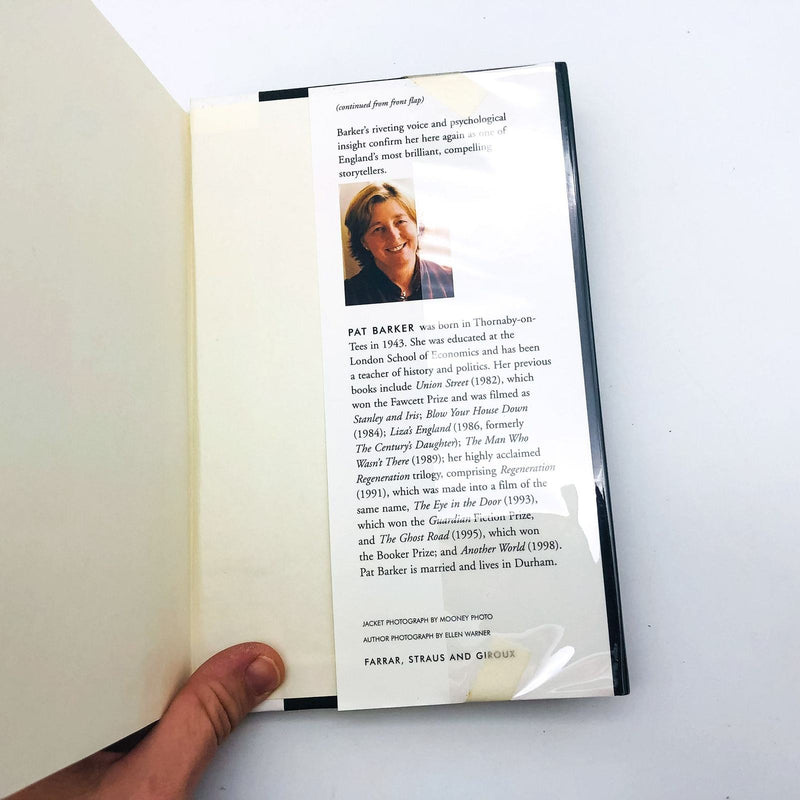 (continued from front flap)
Barker's riveting voice and psychological
insight confirm her here again as one of
England's most brilliant, compelling
storytellers.
PAT BARKER was born in Thornaby-on-
Tees in 1943. She was educated at the
London School of Economics and has been
a teacher of history and politics. Her previous
books include Union Street (1982), which
won the Fawcett Prize and was filmed as
Stanley and Iris; Blow Your House Down
(1984); Liza's England (1986, formerly
The Century's Daughter); The Man Who
Wasn't There (1989); her highly acclaimed
Regeneration trilogy, comprising Regeneration
(1991), which was made into a film of the
same name, The Eye in the Door (1993),
which won the Guardian Fiction Prize,
and The Ghost Road (1995), which won
the Booker Prize; and Another World (1998).
Pat Barker is married and lives in Durham.
JACKET PHOTOGRAPH BY MOONEY PHOTO
AUTHOR PHOTOGRAPH BY ELLEN WARNER
FARRAR, STRAUS AND GIROUX